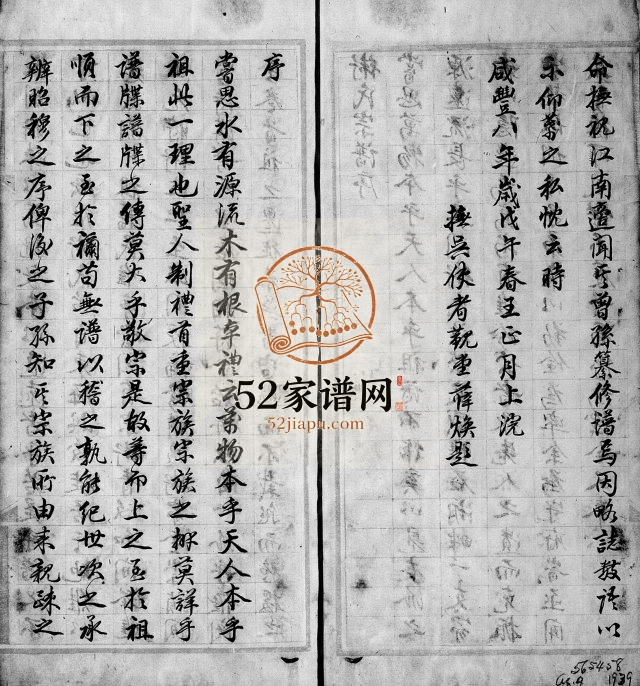 命撫視江南遵聞其曾孫纂修譜焉因略誌數語以
示仰慕之私忱云時
咸豐八年歲戊午春王正月上浣
撫吳使者覲堂薛煥題
序
嘗思水有源流木有根本禮云萬物本乎天人本乎
祖此一理也聖人制禮首重宗族宗族之辦莫詳乎
譜牒譜牒之傳莫大乎敬宗是故尊而上之至於祖
順而下之至於禰苟無譜以稽之孰能紀世次之承
辨昭穆之序俾後之子孫知其宗族所由来親疎之
52家谱网
52jiapu.com
565458
1939